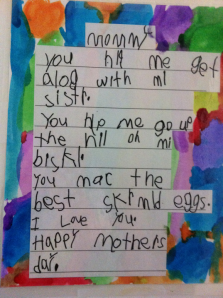 mommy
you hlp me get
alog with mi
sistr.
You hlp me go up
the hil on mi
biskl.
you mac the
best skrmld eggs.
I Love you.
Happy mothers
day.